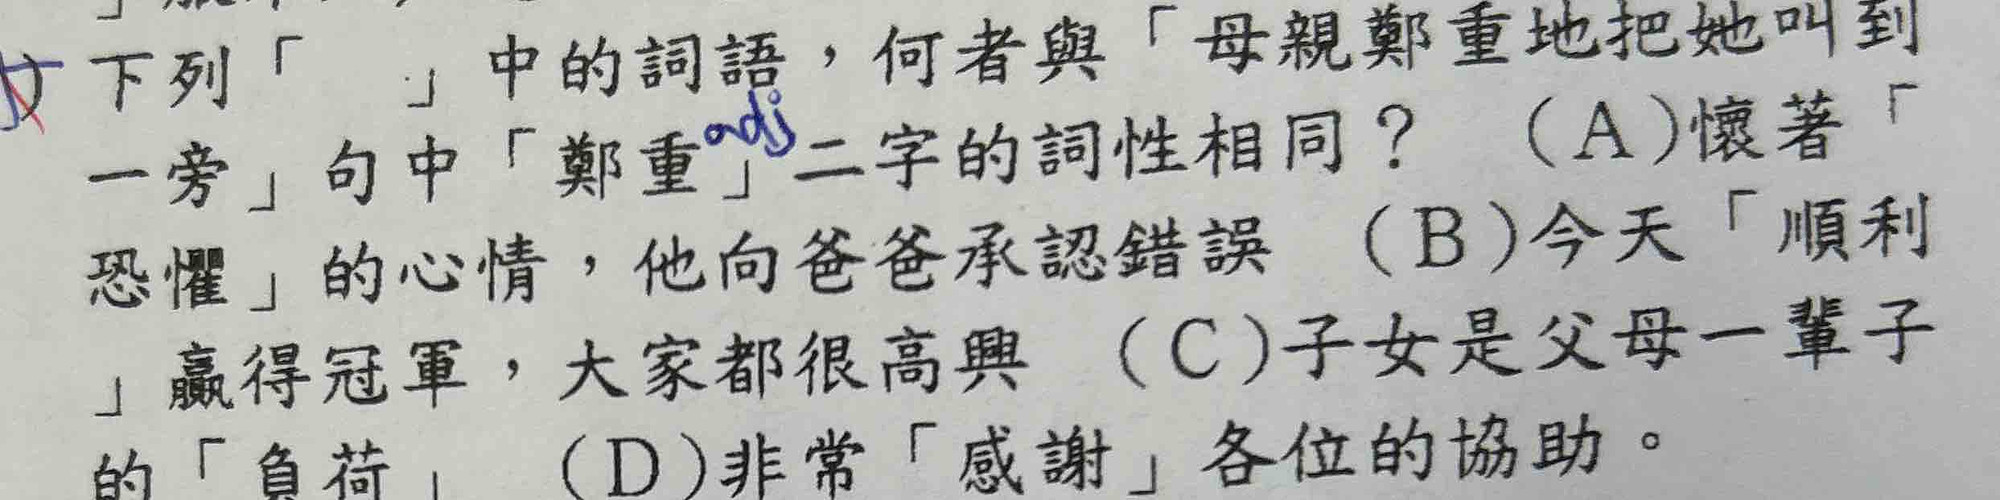 下列「　　」中的詞語，何者與「母親鄭重地把她叫到
adj
一旁」句中「鄭重」二字的詞性相同？　(A)懷著「
恐懼」的心情，他向爸爸承認錯誤　(B)今天「順利
」贏得冠軍，大家都很高興　(C)子女是父母一輩子
的「負荷」　(D)非常「感謝」各位的協助。